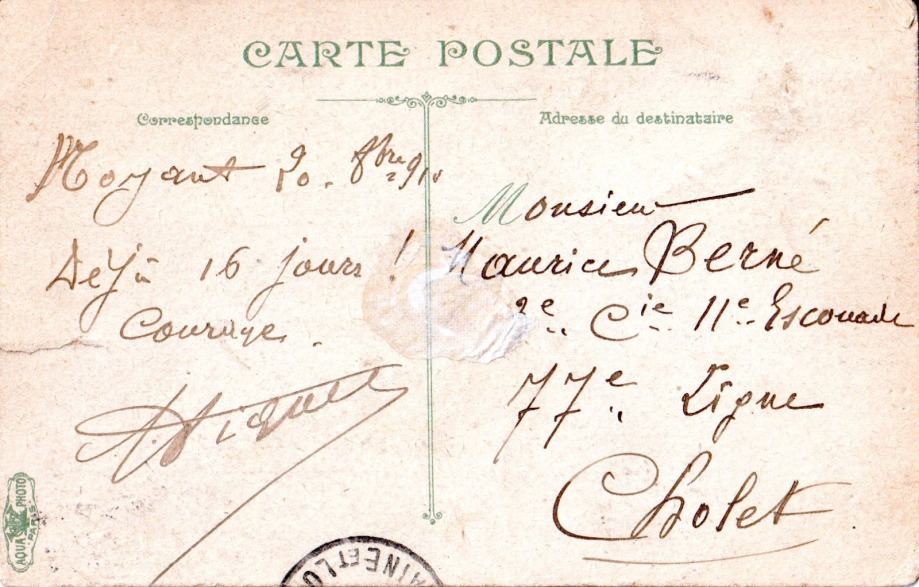 CARTE POSTALE
Correspondance
Adresse du destinataire
Noyant 20. 8bre 91
Déjà 16 jours !
Courage.
Monsieur
Maurice Berné
2e Cie 11e Escouade
77e Ligne
Cholet
AQUA PHOTO
PARIS
AINE ET LO